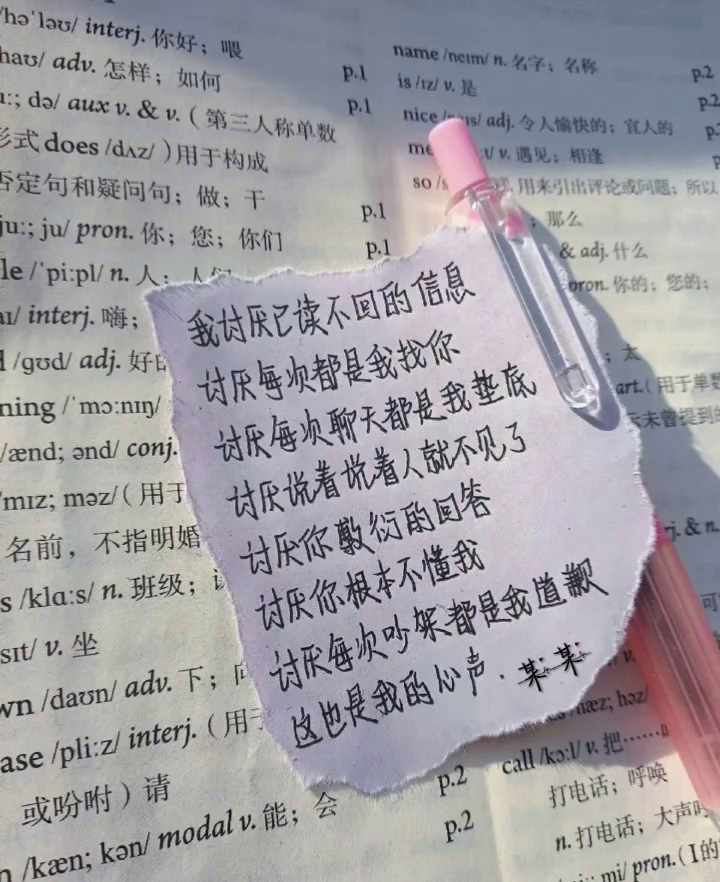 /hə'ləʊ/ interj. 你好；喂
/haʊ/ adv. 怎样；如何 p.1
uː; də/ aux v. & v.（第三人称单数 p.1
形式 does /dʌz/）用于构成
否定句和疑问句；做；干
juː; ju/ pron. 你；您；你们 p.1
le /'piːpl/ n. 人； p.1
aɪ/ interj. 嗨；
d /ɡʊd/ adj. 好的
ning /'mɔːnɪŋ/
/ænd; ənd/ conj.
/'mɪz; məz/（用于
名前，不指明婚
s /klɑːs/ n. 班级；
sɪt/ v. 坐
wn /daʊn/ adv. 下；向
ase /pliːz/ interj.（用于
或吩咐）请 p.2
n /kæn; kən/ modal v. 能；会 p.2
name /neɪm/ n. 名字；名称 p.2
is /ɪz/ v. 是 p.2
nice /naɪs/ adj. 令人愉快的；宜人的 p.
me v. 遇见；相逢 p
so /s 用来引出评论或问题；所以
；那么
& adj. 什么
pron. 你的；您的；
；太
art.（用于单数
未曾提到的
我讨厌已读不回的信息
讨厌每次都是我找你
讨厌每次聊天都是我垫底
讨厌说着说着人就不见了
讨厌你敷衍的回答
讨厌你根本不懂我
讨厌每次吵架都是我道歉
这也是我的心声.某某
j. & n.
v.
hæz; həz/
call /kɔːl/ v. 把……叫
打电话；呼唤
n. 打电话；大声叫
mi/ pron.（I的